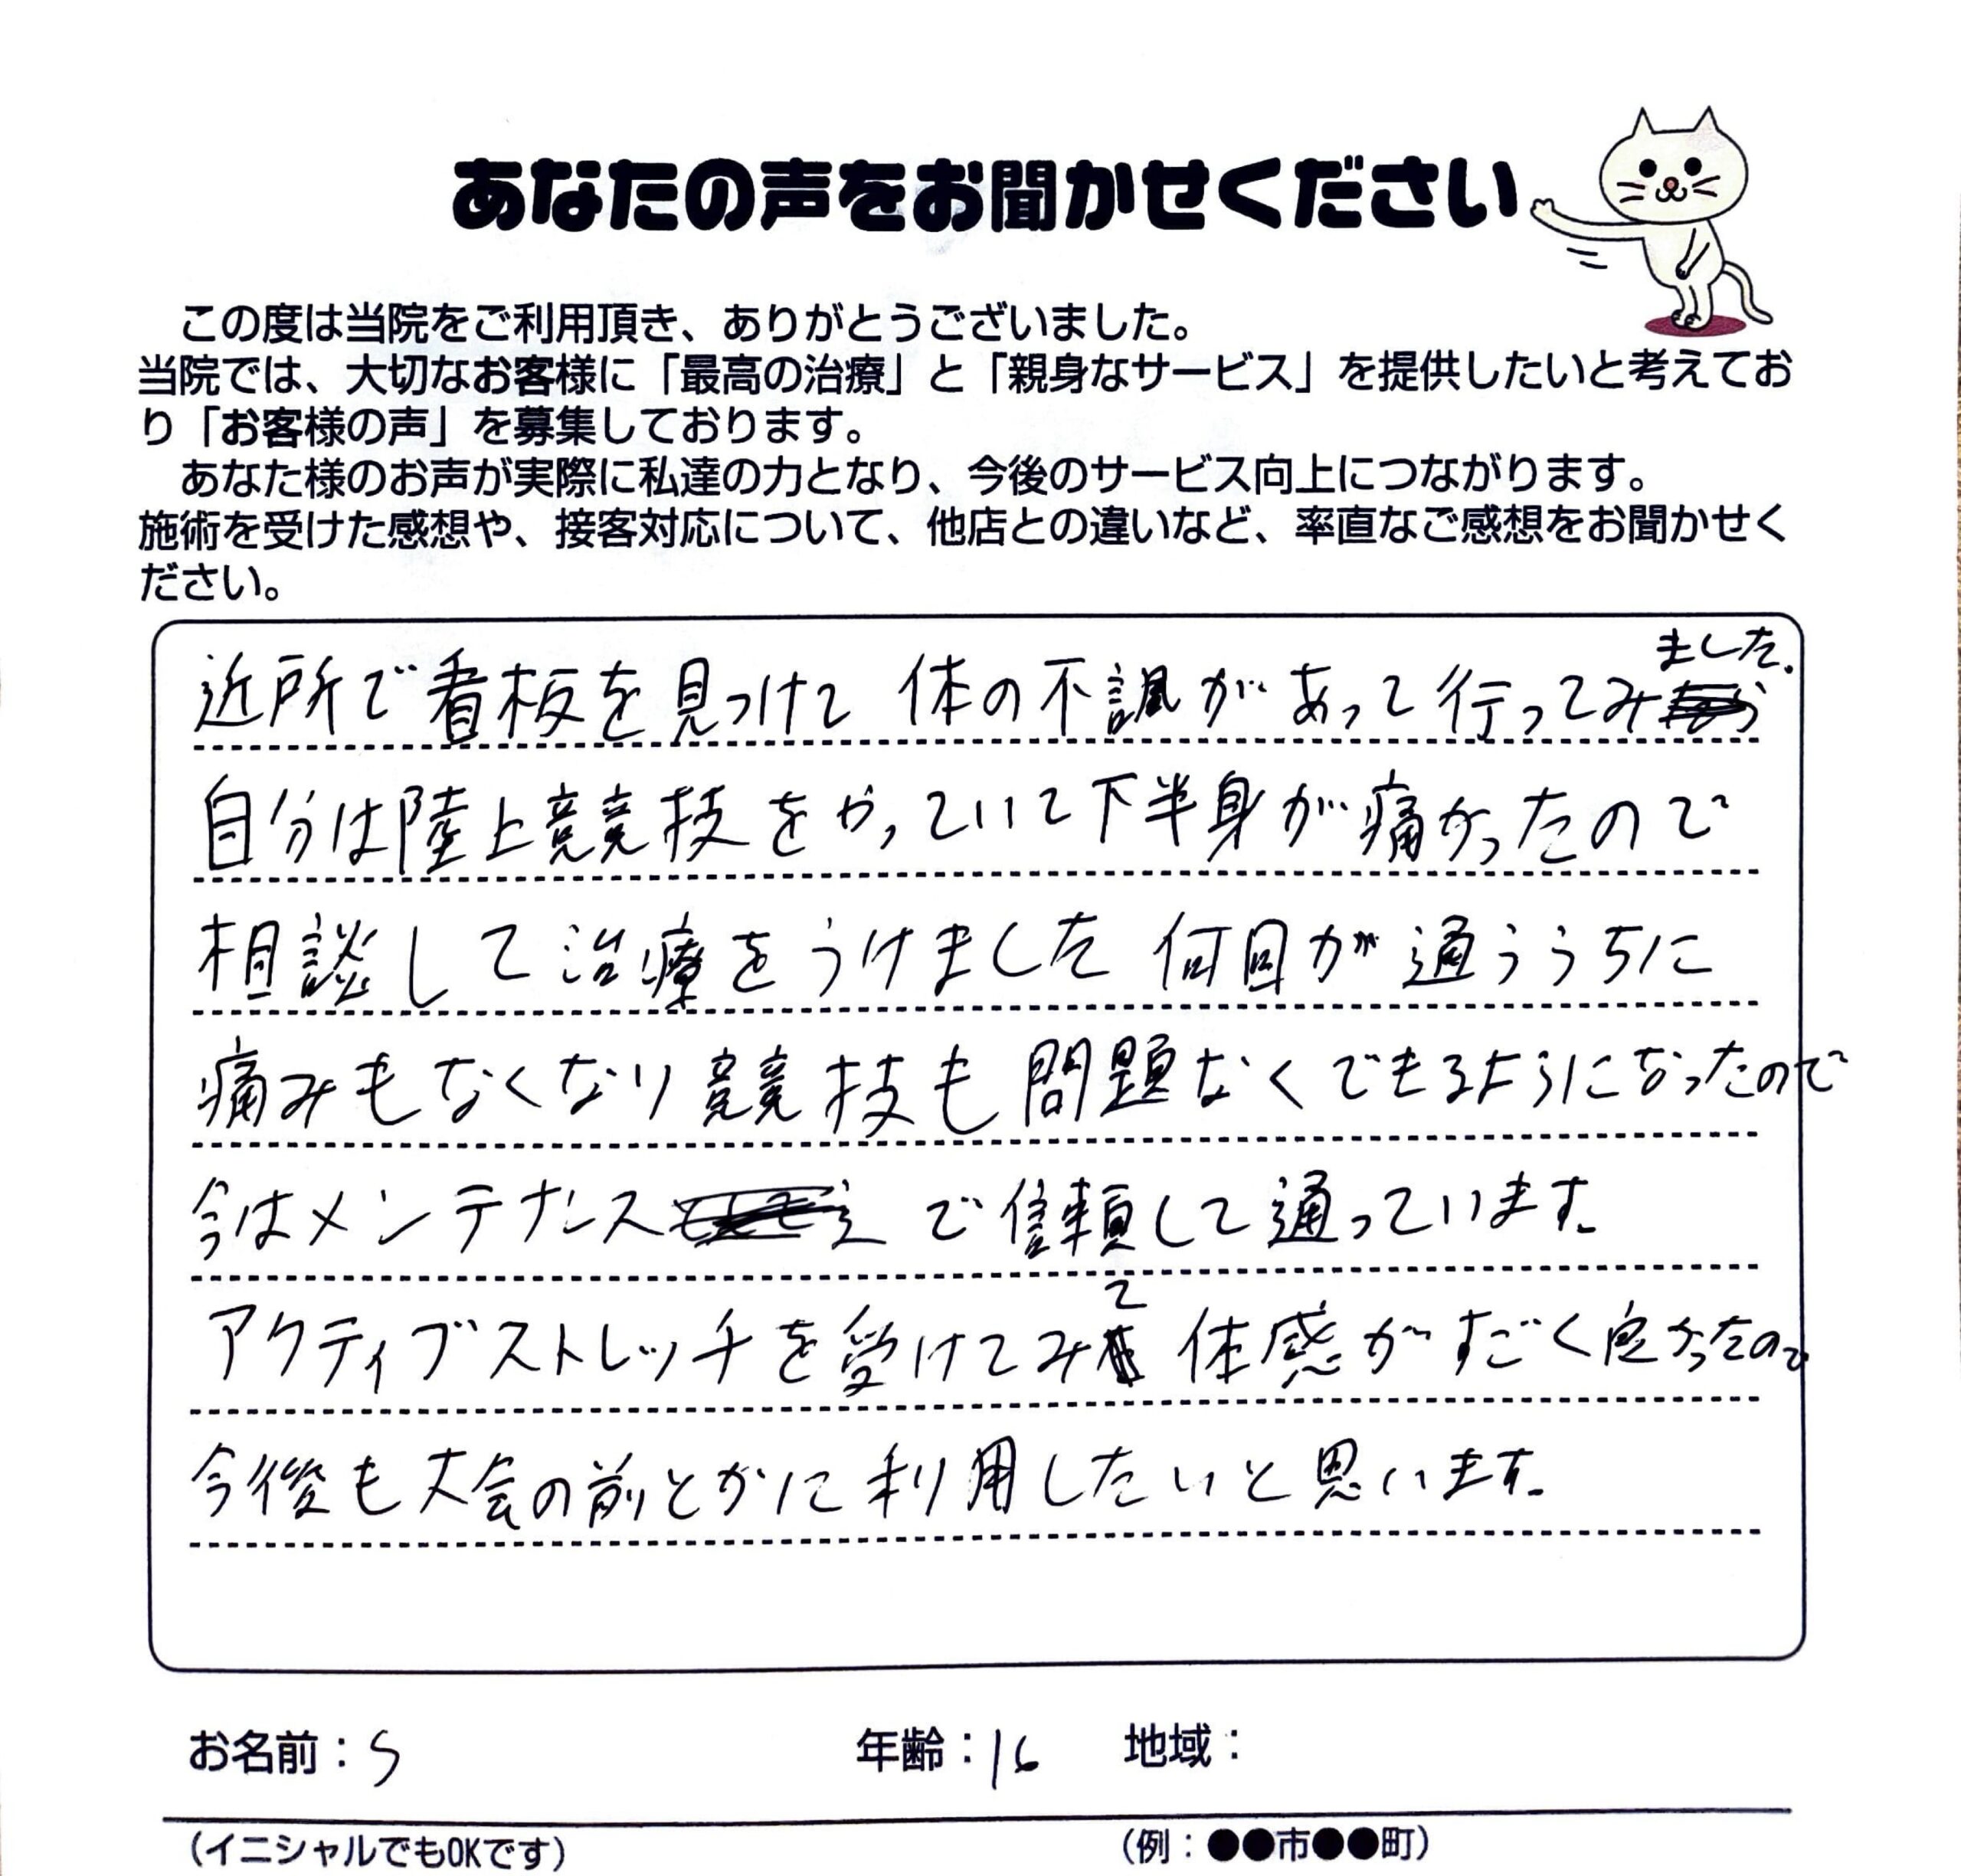 あなたの声をお聞かせください
この度は当院をご利用頂き、ありがとうございました。
当院では、大切なお客様に「最高の治療」と「親身なサービス」を提供したいと考えてお
り「お客様の声」を募集しております。
あなた様のお声が実際に私達の力となり、今後のサービス向上につながります。
施術を受けた感想や、接客対応について、他店との違いなど、率直なご感想をお聞かせく
ださい。
近所で看板を見つけて 体の不調があって行ってみました。
自分は陸上競技をやっていて下半身が痛かったので
相談して治療をうけました 何回か通ううちに
痛みもなくなり競技も問題なくできるようになったので
今はメンテナンスで信頼して通っています。
アクティブストレッチを受けてみて 体感がすごく良かったので
今後も大会の前とかに利用したいと思います。
お名前：S 年齢：16 地域：
（イニシャルでもOKです） （例：●●市●●町）